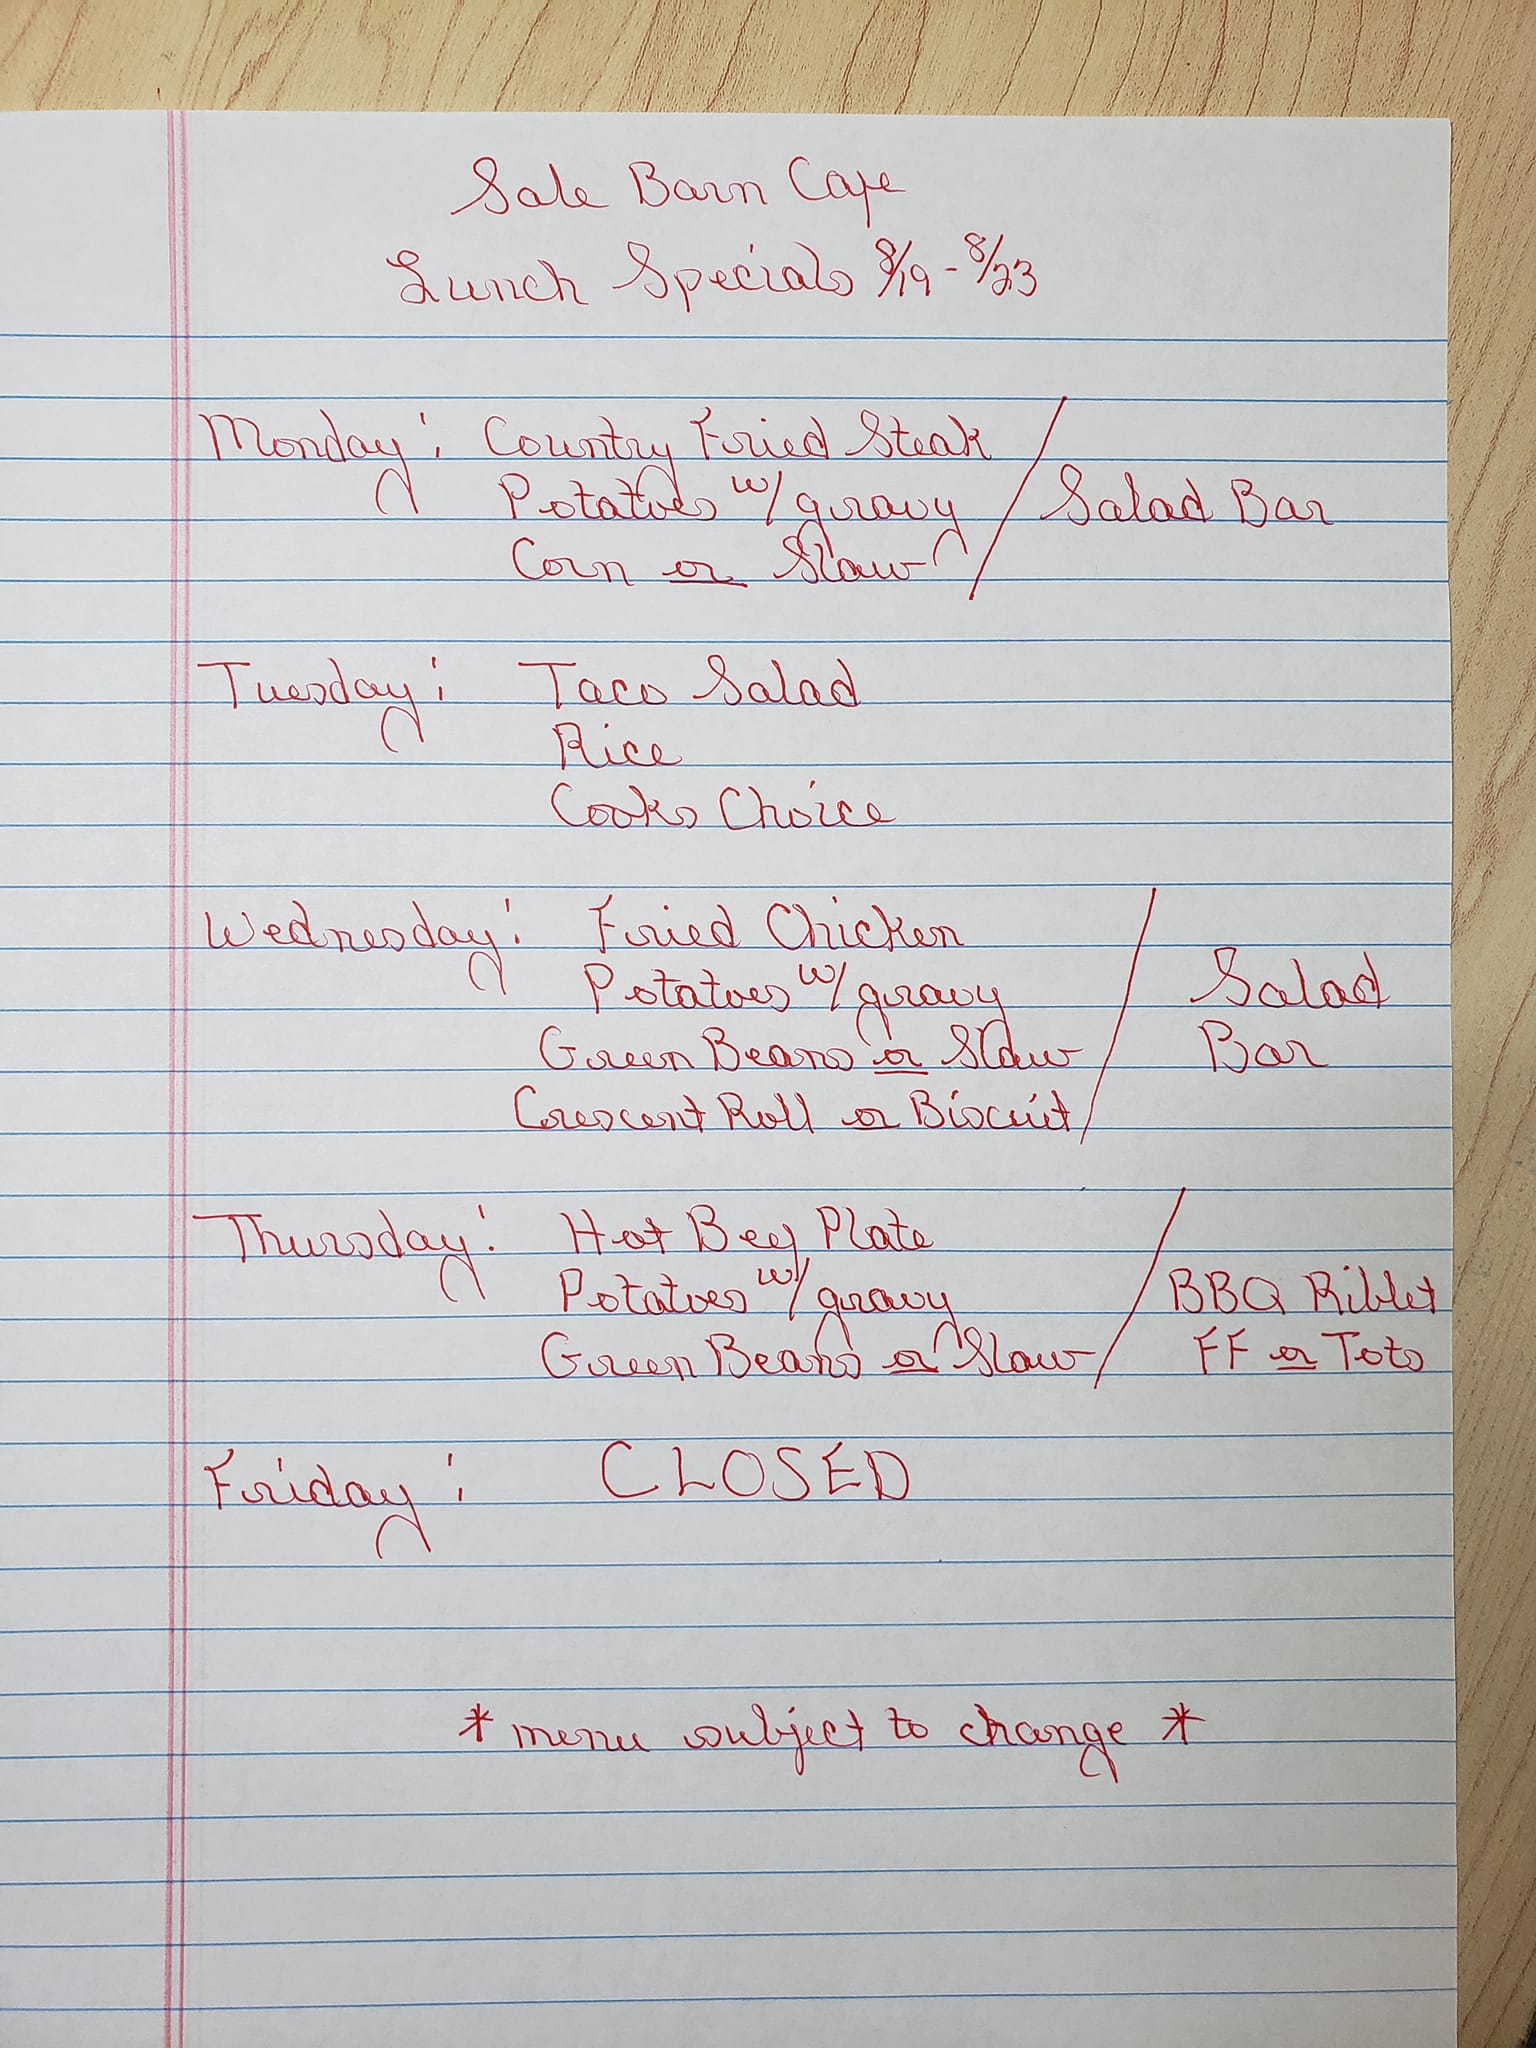 Sale Barn Cafe
Lunch Specials 8/19 - 8/23
Monday: Country Fried Steak
Potatoes w/ gravy / Salad Bar
Corn or Slaw
Tuesday: Taco Salad
Rice
Cooks Choice
Wednesday: Fried Chicken
Potatoes w/ gravy / Salad
Green Beans or Slaw Bar
Crescent Roll or Biscuit
Thursday: Hot Beef Plate
Potatoes w/ gravy / BBQ Riblet
Green Beans or Slaw FF or Tots
Friday: CLOSED
* menu subject to change *